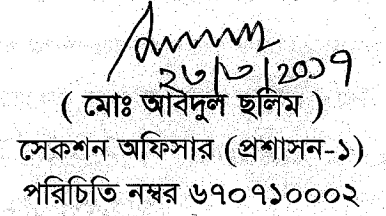 ২৬/৩/2017
( মোঃ আবদুল ছলিম )
সেকশন অফিসার (প্রশাসন-১)
পরিচিতি নম্বর ৬৭০৭১০০০২